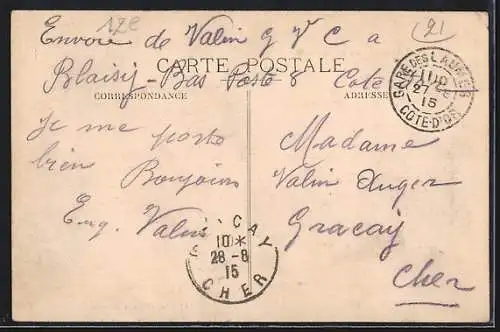 12E
(21
Envoie de Valin G V C a
Blaisy-Bas Poste 8 Cote
CARTE POSTALE
CORRESPONDANCE
ADRESSE
GARE DES LAUMES
27 -8
15
COTE-D'OR
Je me porte
bien
Bonjour
Eug. Valin
Madame
Valin Auger
Graçay
Cher
10 *
28 -8
15
CHER